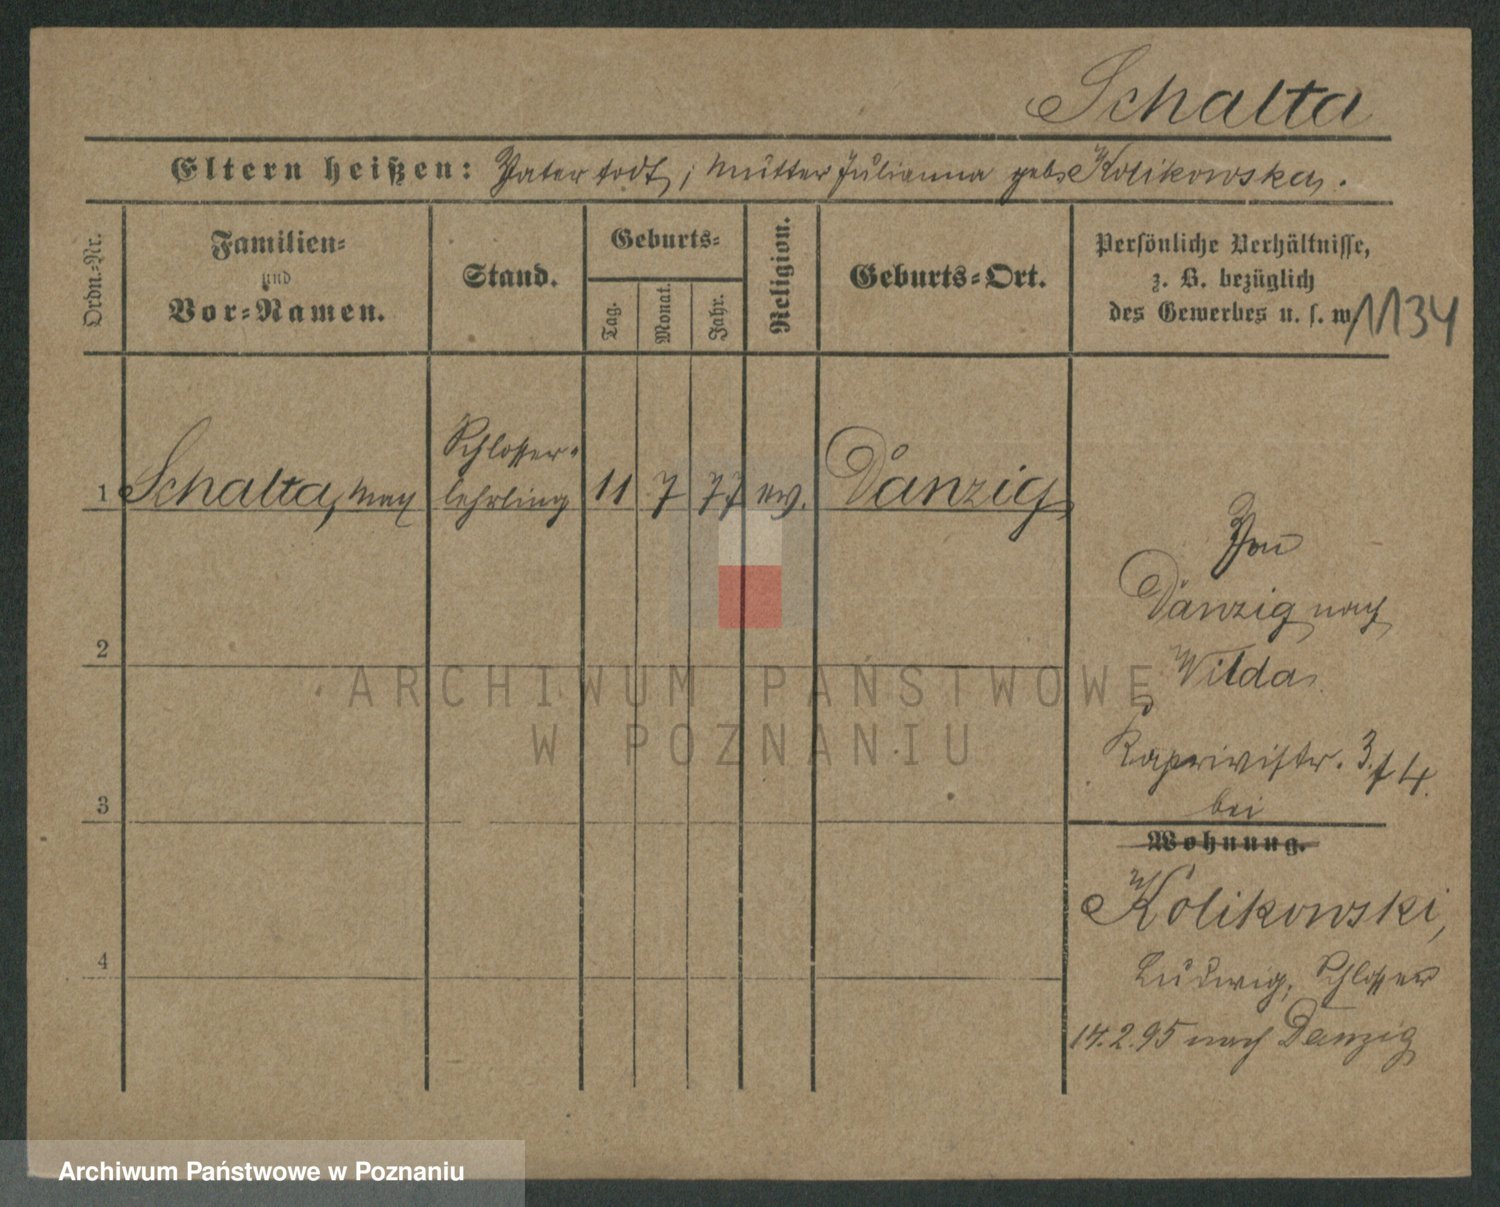 Schalta
Eltern heißen: Vater todt, Mutter Julianna geb. Kolikowska.
Ordn.-Nr.
Familien-
und
Vor-Namen.
Stand.
Geburts-
Tag.
Monat.
Jahr.
Religion.
Geburts-Ort.
Persönliche Verhältnisse,
z. B. bezüglich
des Gewerbes u. s. w.
1134
1 Schalta, Max
Schlosser-
lehrling
11 7 77 ev. Danzig
Von
Danzig nach
Wilda
Kaprivistr. 3/4.
bei
Wohnung.
Kolikowski,
Ludwig, Schlosser
14.2.95 nach Danzig
2
3
4
ARCHIWUM PAŃSTWOWE
W POZNANIU
Archiwum Państwowe w Poznaniu